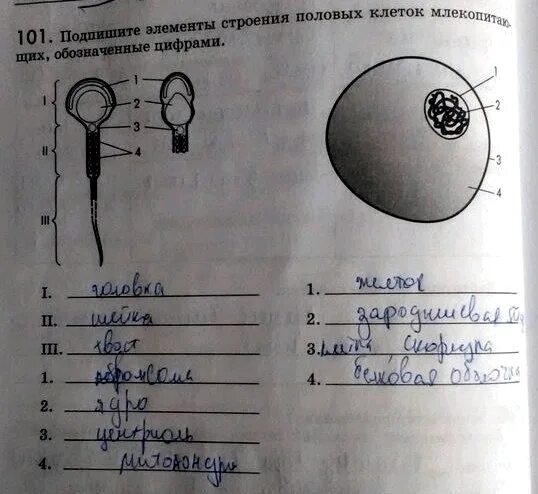 101. Подпишите элементы строения половых клеток млекопитаю-
щих, обозначенные цифрами.
I
II
III
1
2
3
4
1
2
3
4
I. головка
II. шейка
III. хвост
1.
2. ядро
3. центриоль
4.
1. желток
2. зародышевая
3. скорлупа
4. белковая оболочка